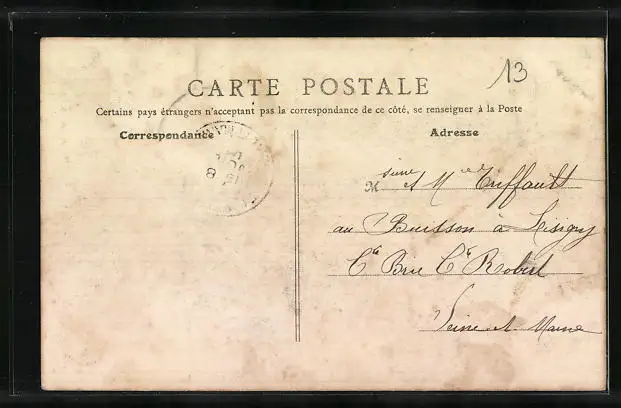 13
CARTE POSTALE
Certains pays étrangers n'acceptant pas la correspondance de ce côté, se renseigner à la Poste
Correspondance
Adresse
et Triffault
au Buisson à Lésigny
Brie Robert
Seine et Marne